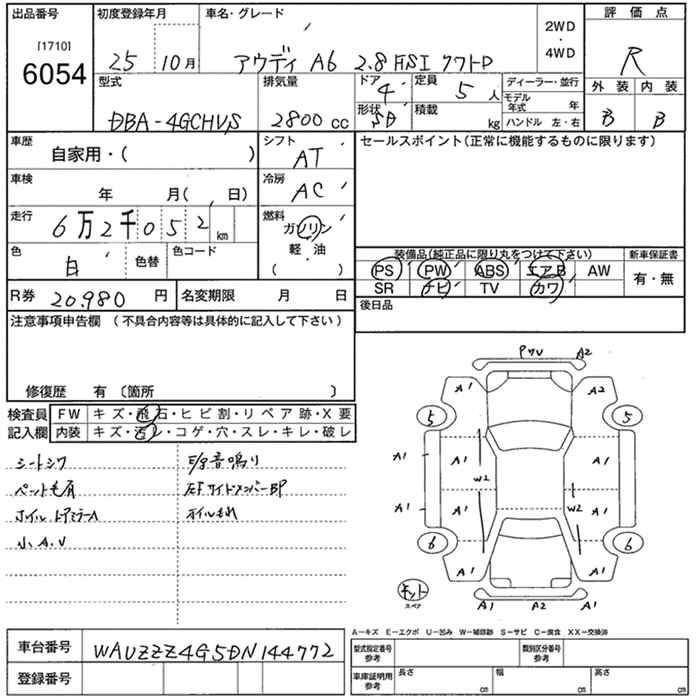 出品番号 初度登録年月 車名・グレード 2WD・4WD 評価点
[1710]
6054 25 10月 アウディ A6 2.8 FSI クワトロ R
型式 排気量 ドア 4 定員 5人 ディーラー・並行 外装 内装
形状 SD 積載 kg モデル年式 年
DBA-4GCHVS 2800cc ハンドル 左・右 B B
車歴 自家用・( ) シフト AT セールスポイント(正常に機能するものに限ります)
車検 年 月( 日) 冷房 AC
走行 6万2千052km 燃料 ガソリン
軽・油
( )
色 白 色替 色コード 装備品(純正品に限り丸をつけて下さい) 新車保証書
PS PW ABS エアB AW 有・無
SR ナビ TV カワ
R券 20,980円 名変期限 月 日 後日品
注意事項申告欄 (不具合内容等は具体的に記入して下さい)
修復歴 有 〔箇所 〕
検査員 FW キズ・飛石・ヒビ割・リペア跡・X要
記入欄 内装 キズ・汚レ・コゲ・穴・スレ・キレ・破レ
シートシワ E/g音鳴り
ペット毛有 左Fサイドメンバー BP
ホイル、ドアミラーA オイルもれ
小A.U
PクU A2
A1 A2
5 5
A1 A1 A1
W2
A1 A1 W2 A1
6 6
A1 A1
キット
スペア A1 A2 A1
A-キズ E-エクボ U-凹み W-補修跡 S-サビ C-腐食 XX-交換済
車台番号 WAUZZZ4G5DN144772 型式指定番号 参考 類別区分番号 参考
登録番号 車庫証明用 参考 長さ cm 幅 cm 高さ cm